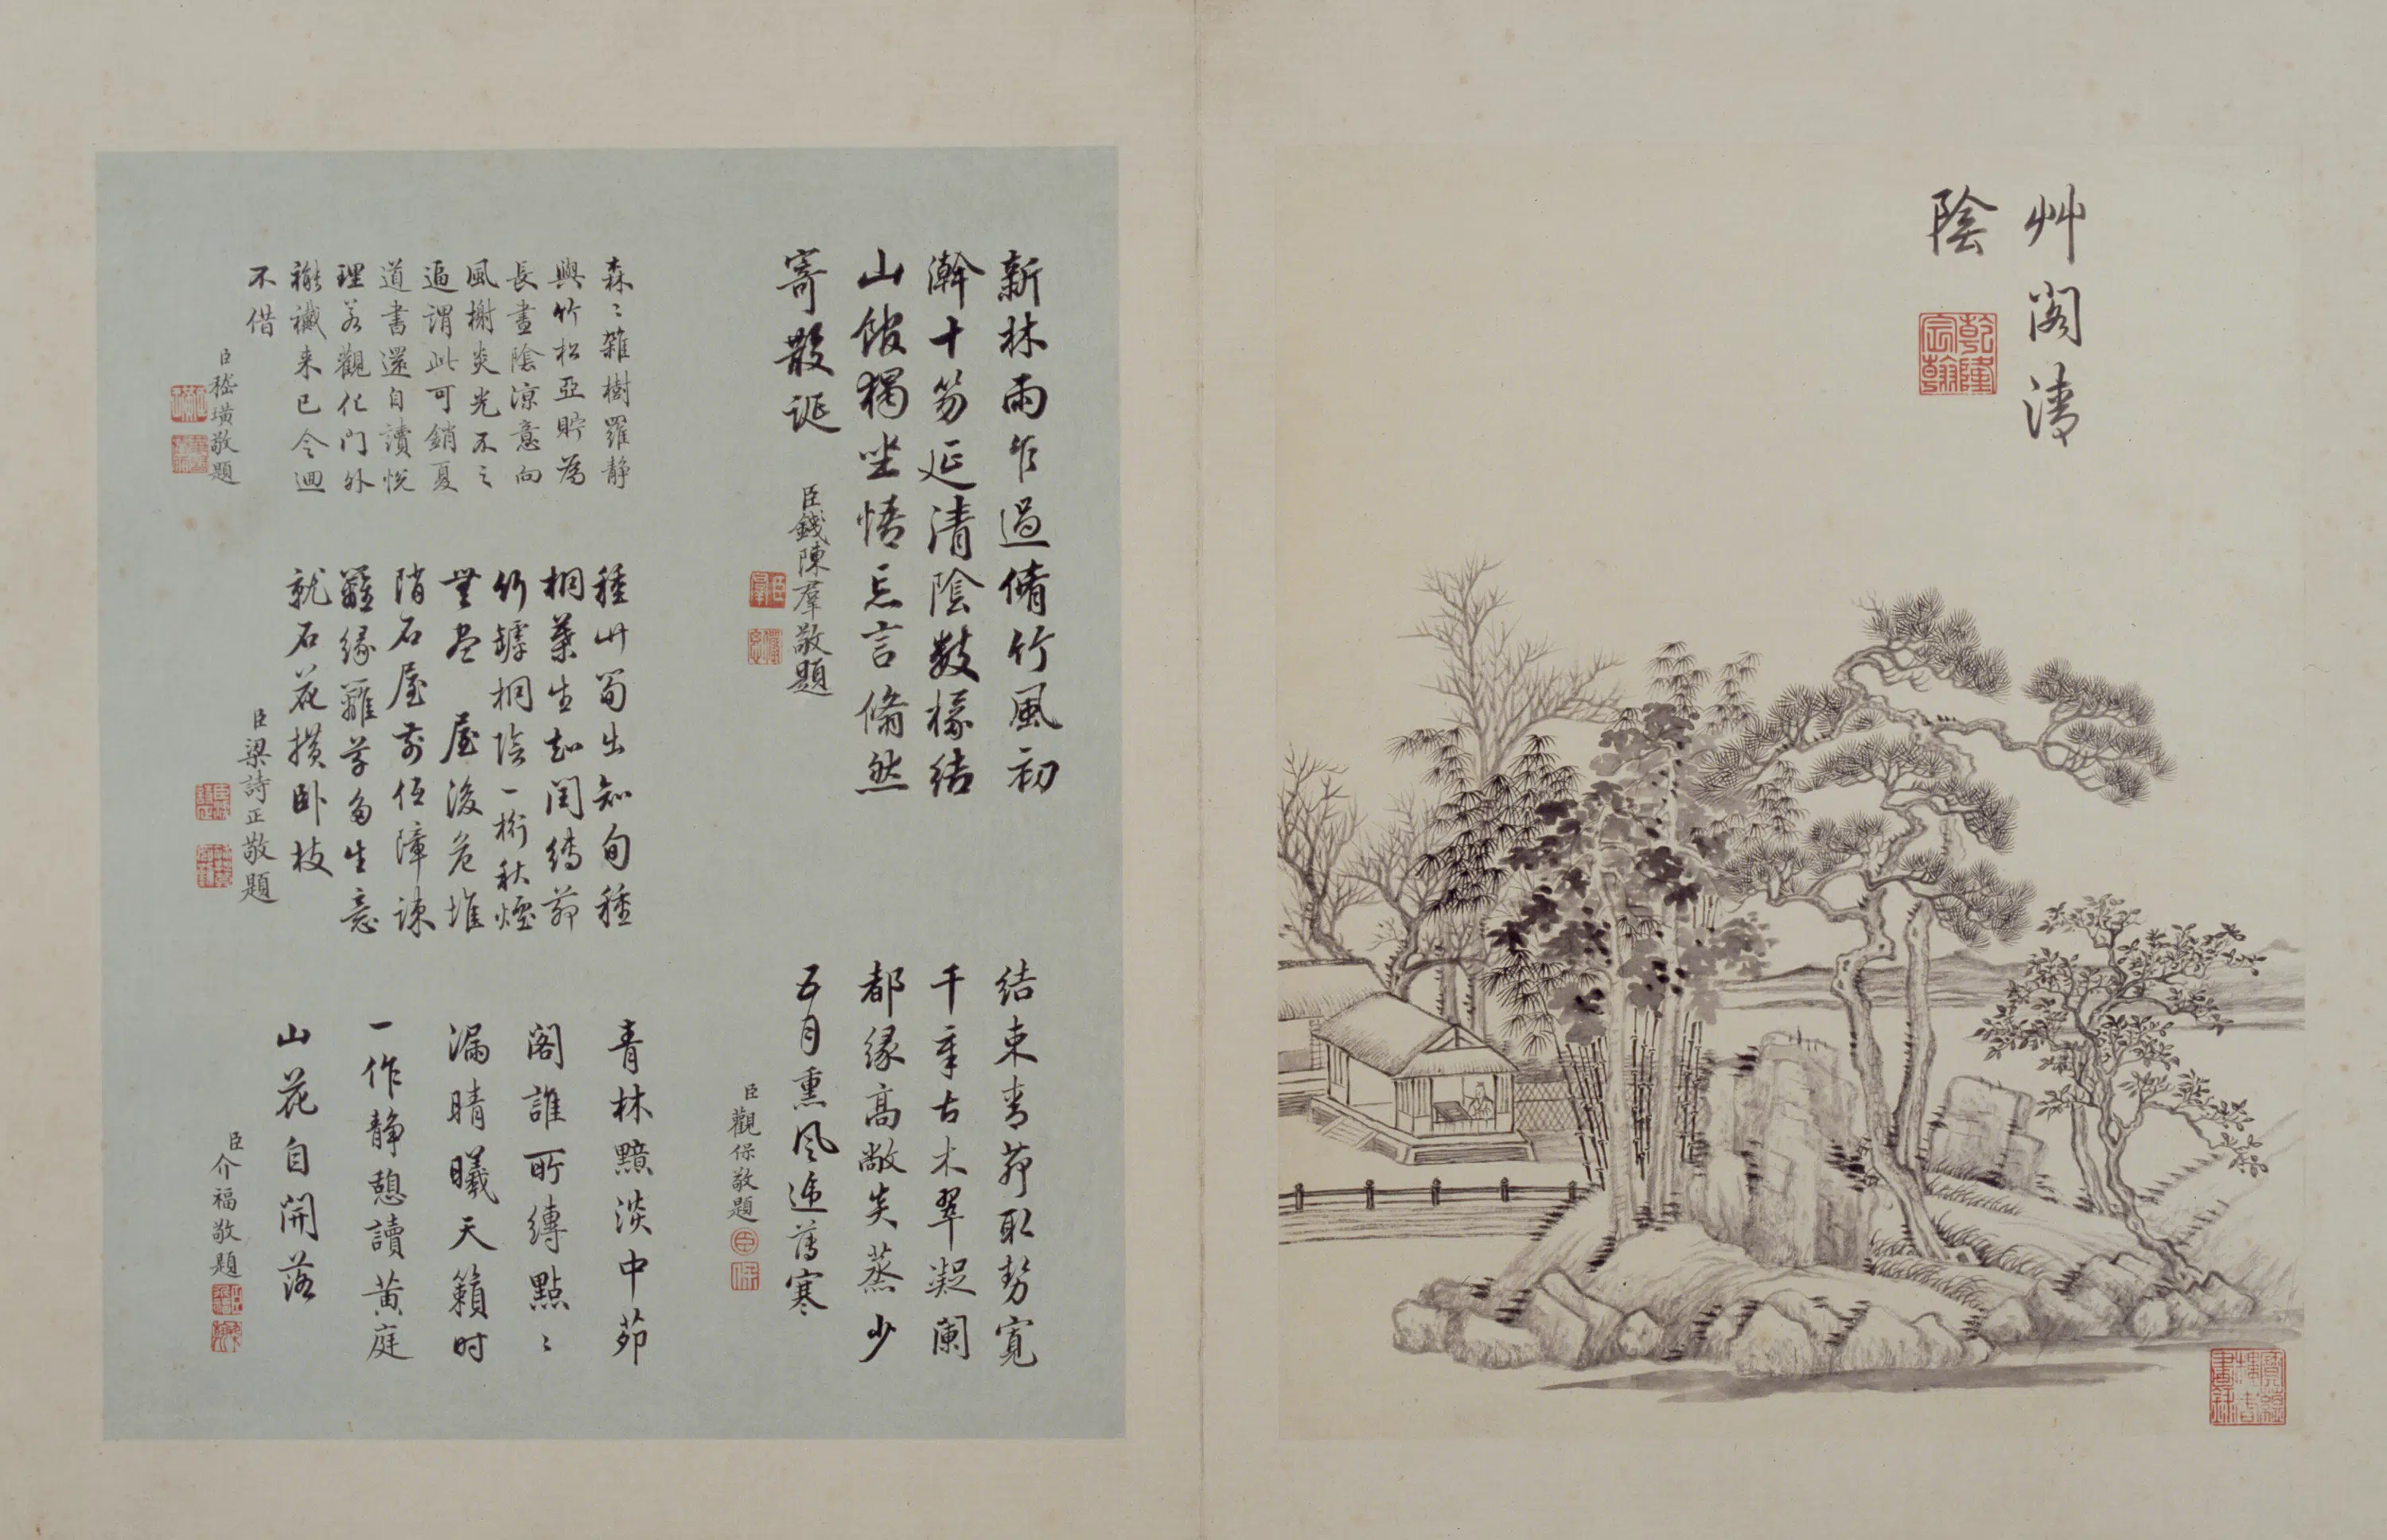 艸阁清
陰
乾隆
宸翰
新林雨乍過脩竹風初
瀚十笏延清陰數椽結
山館獨坐悟忘言翛然
寄散誕
臣錢陳羣敬題
結束青茆取勢寬
千章古木翠凝闌
都緣高敞炎蒸少
五月熏风递薄寒
臣觀保敬題
森〻雜樹羅静
與竹松亞貯為
長晝陰凉意向
風榭炎光不之
逼謂此可銷夏
道書還自讀悦
理若觀化门外
褦襶来已令迴
不借
臣嵇璜敬題
種竹筍出知旬種
桐葉生知閏縛茆
竹罅桐陰一桁秋煙
無尽 屋後危堆
隋石屋前低障疎
籬緣籬草多生意
就石花攢卧枝
臣梁詩正敬題
青林黯淡中茆
閣誰所縳點〻
漏晴曦天籟时
一作静憩讀黄庭
山花自開落
臣介福敬題